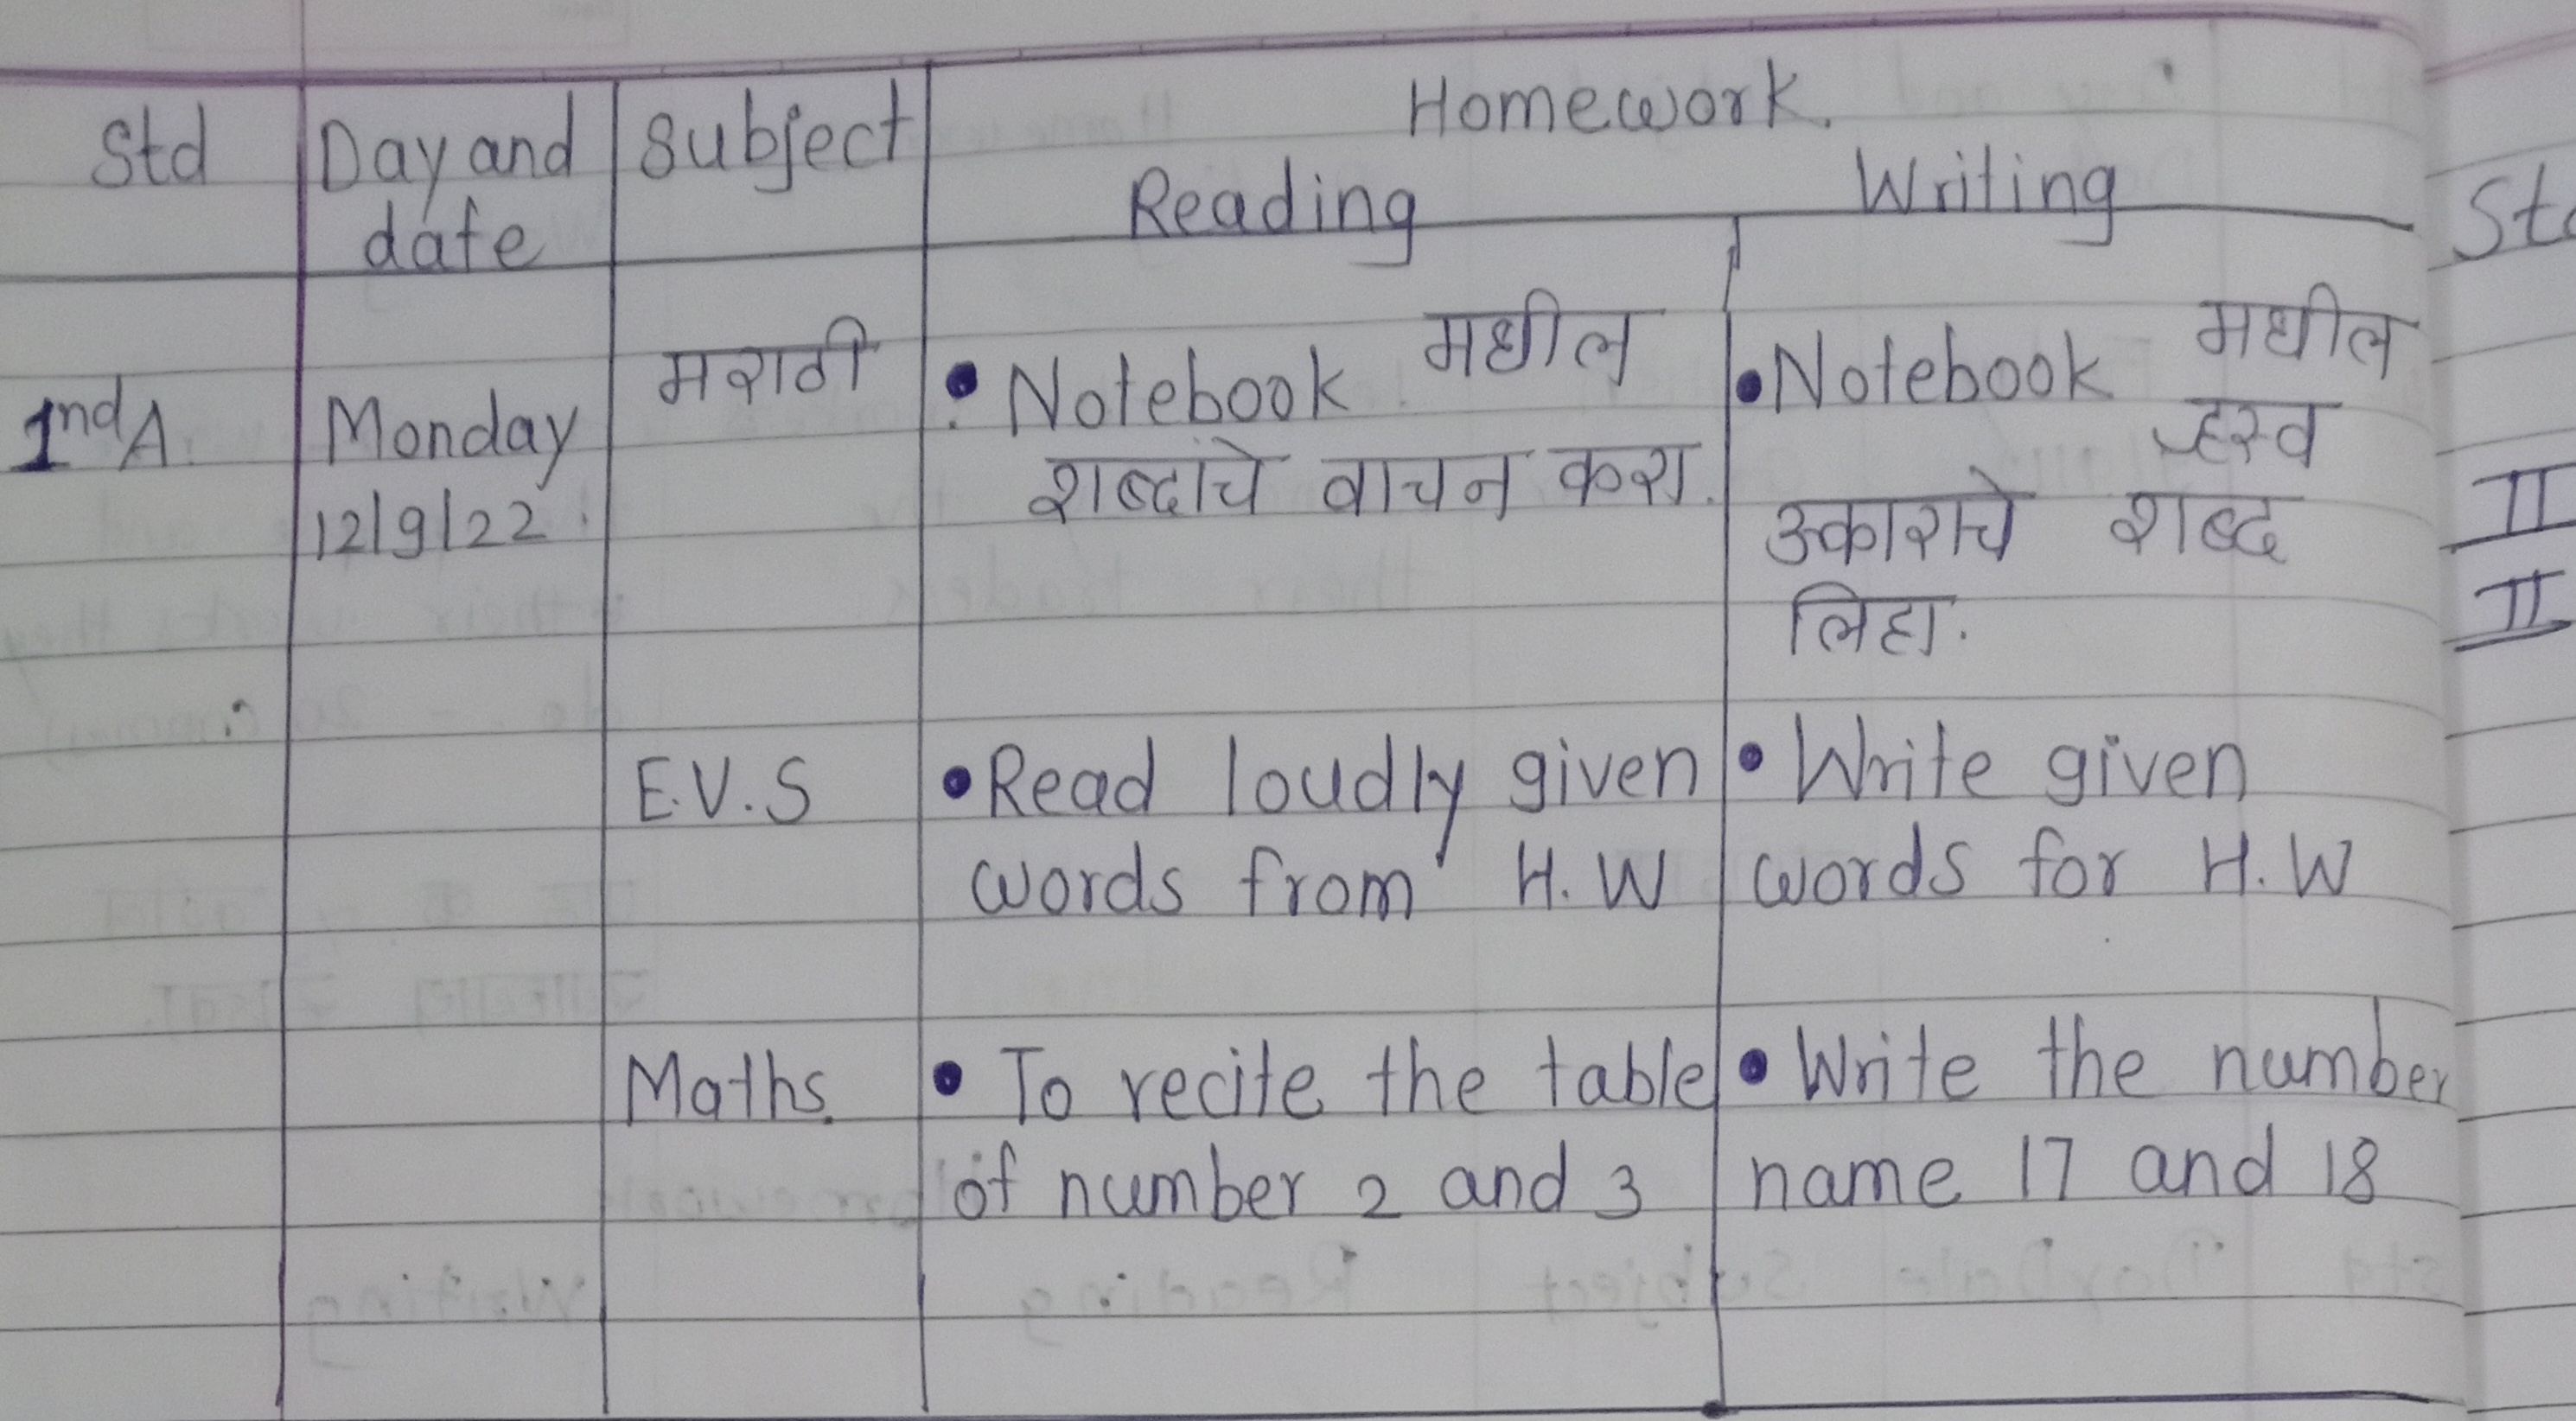 Std Day and Subject Homework.
date Reading Writing
मराठी • Notebook मधील • Notebook मधील
1nd A. Monday शब्दांचे वाचन करा. ऱ्हस्व
12/9/22 उकाराचे शब्द
लिहा.
E.V.S • Read loudly given • Write given
words from H.W words for H.W
Maths. • To recite the table • Write the number
of number 2 and 3 name 17 and 18
II
II